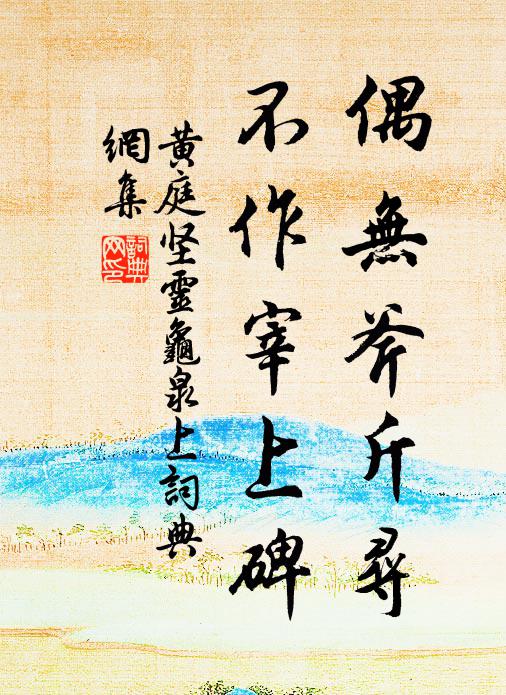 偶無斧斤尋
不作宰上碑
黄庭坚靈龜泉上詞典
網集
詞典
网印